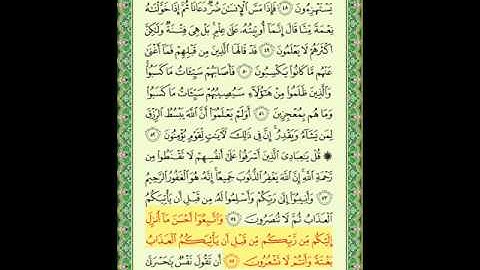 يَسْتَهْزِءُونَ ٤٨ فَإِذَا مَسَّ ٱلْإِنسَٰنَ ضُرٌّ دَعَانَا ثُمَّ إِذَا خَوَّلْنَٰهُ
نِعْمَةً مِّنَّا قَالَ إِنَّمَآ أُوتِيتُهُۥ عَلَىٰ عِلْمٍۭ بَلْ هِىَ فِتْنَةٌ وَلَٰكِنَّ
أَكْثَرَهُمْ لَا يَعْلَمُونَ ٤٩ قَدْ قَالَهَا ٱلَّذِينَ مِن قَبْلِهِمْ فَمَآ أَغْنَىٰ
عَنْهُم مَّا كَانُوا۟ يَكْسِبُونَ ٥٠ فَأَصَابَهُمْ سَيِّـَٔاتُ مَا كَسَبُوا۟
وَٱلَّذِينَ ظَلَمُوا۟ مِنْ هَٰٓؤُلَآءِ سَيُصِيبُهُمْ سَيِّـَٔاتُ مَا كَسَبُوا۟
وَمَا هُم بِمُعْجِزِينَ ٥١ أَوَلَمْ يَعْلَمُوٓا۟ أَنَّ ٱللَّهَ يَبْسُطُ ٱلرِّزْقَ
لِمَن يَشَآءُ وَيَقْدِرُ إِنَّ فِى ذَٰلِكَ لَءَايَٰتٍ لِّقَوْمٍ يُؤْمِنُونَ ٥٢
۞ قُلْ يَٰعِبَادِىَ ٱلَّذِينَ أَسْرَفُوا۟ عَلَىٰٓ أَنفُسِهِمْ لَا تَقْنَطُوا۟ مِن
رَّحْمَةِ ٱللَّهِ إِنَّ ٱللَّهَ يَغْفِرُ ٱلذُّنُوبَ جَمِيعًا إِنَّهُۥ هُوَ ٱلْغَفُورُ ٱلرَّحِيمُ
٥٣ وَأَنِيبُوٓا۟ إِلَىٰ رَبِّكُمْ وَأَسْلِمُوا۟ لَهُۥ مِن قَبْلِ أَن يَأْتِيَكُمُ
ٱلْعَذَابُ ثُمَّ لَا تُنصَرُونَ ٥٤ وَٱتَّبِعُوٓا۟ أَحْسَنَ مَآ أُنزِلَ
إِلَيْكُم مِّن رَّبِّكُم مِّن قَبْلِ أَن يَأْتِيَكُمُ ٱلْعَذَابُ
بَغْتَةً وَأَنتُمْ لَا تَشْعُرُونَ ٥٥ أَن تَقُولَ نَفْسٌ يَٰحَسْرَتَىٰ